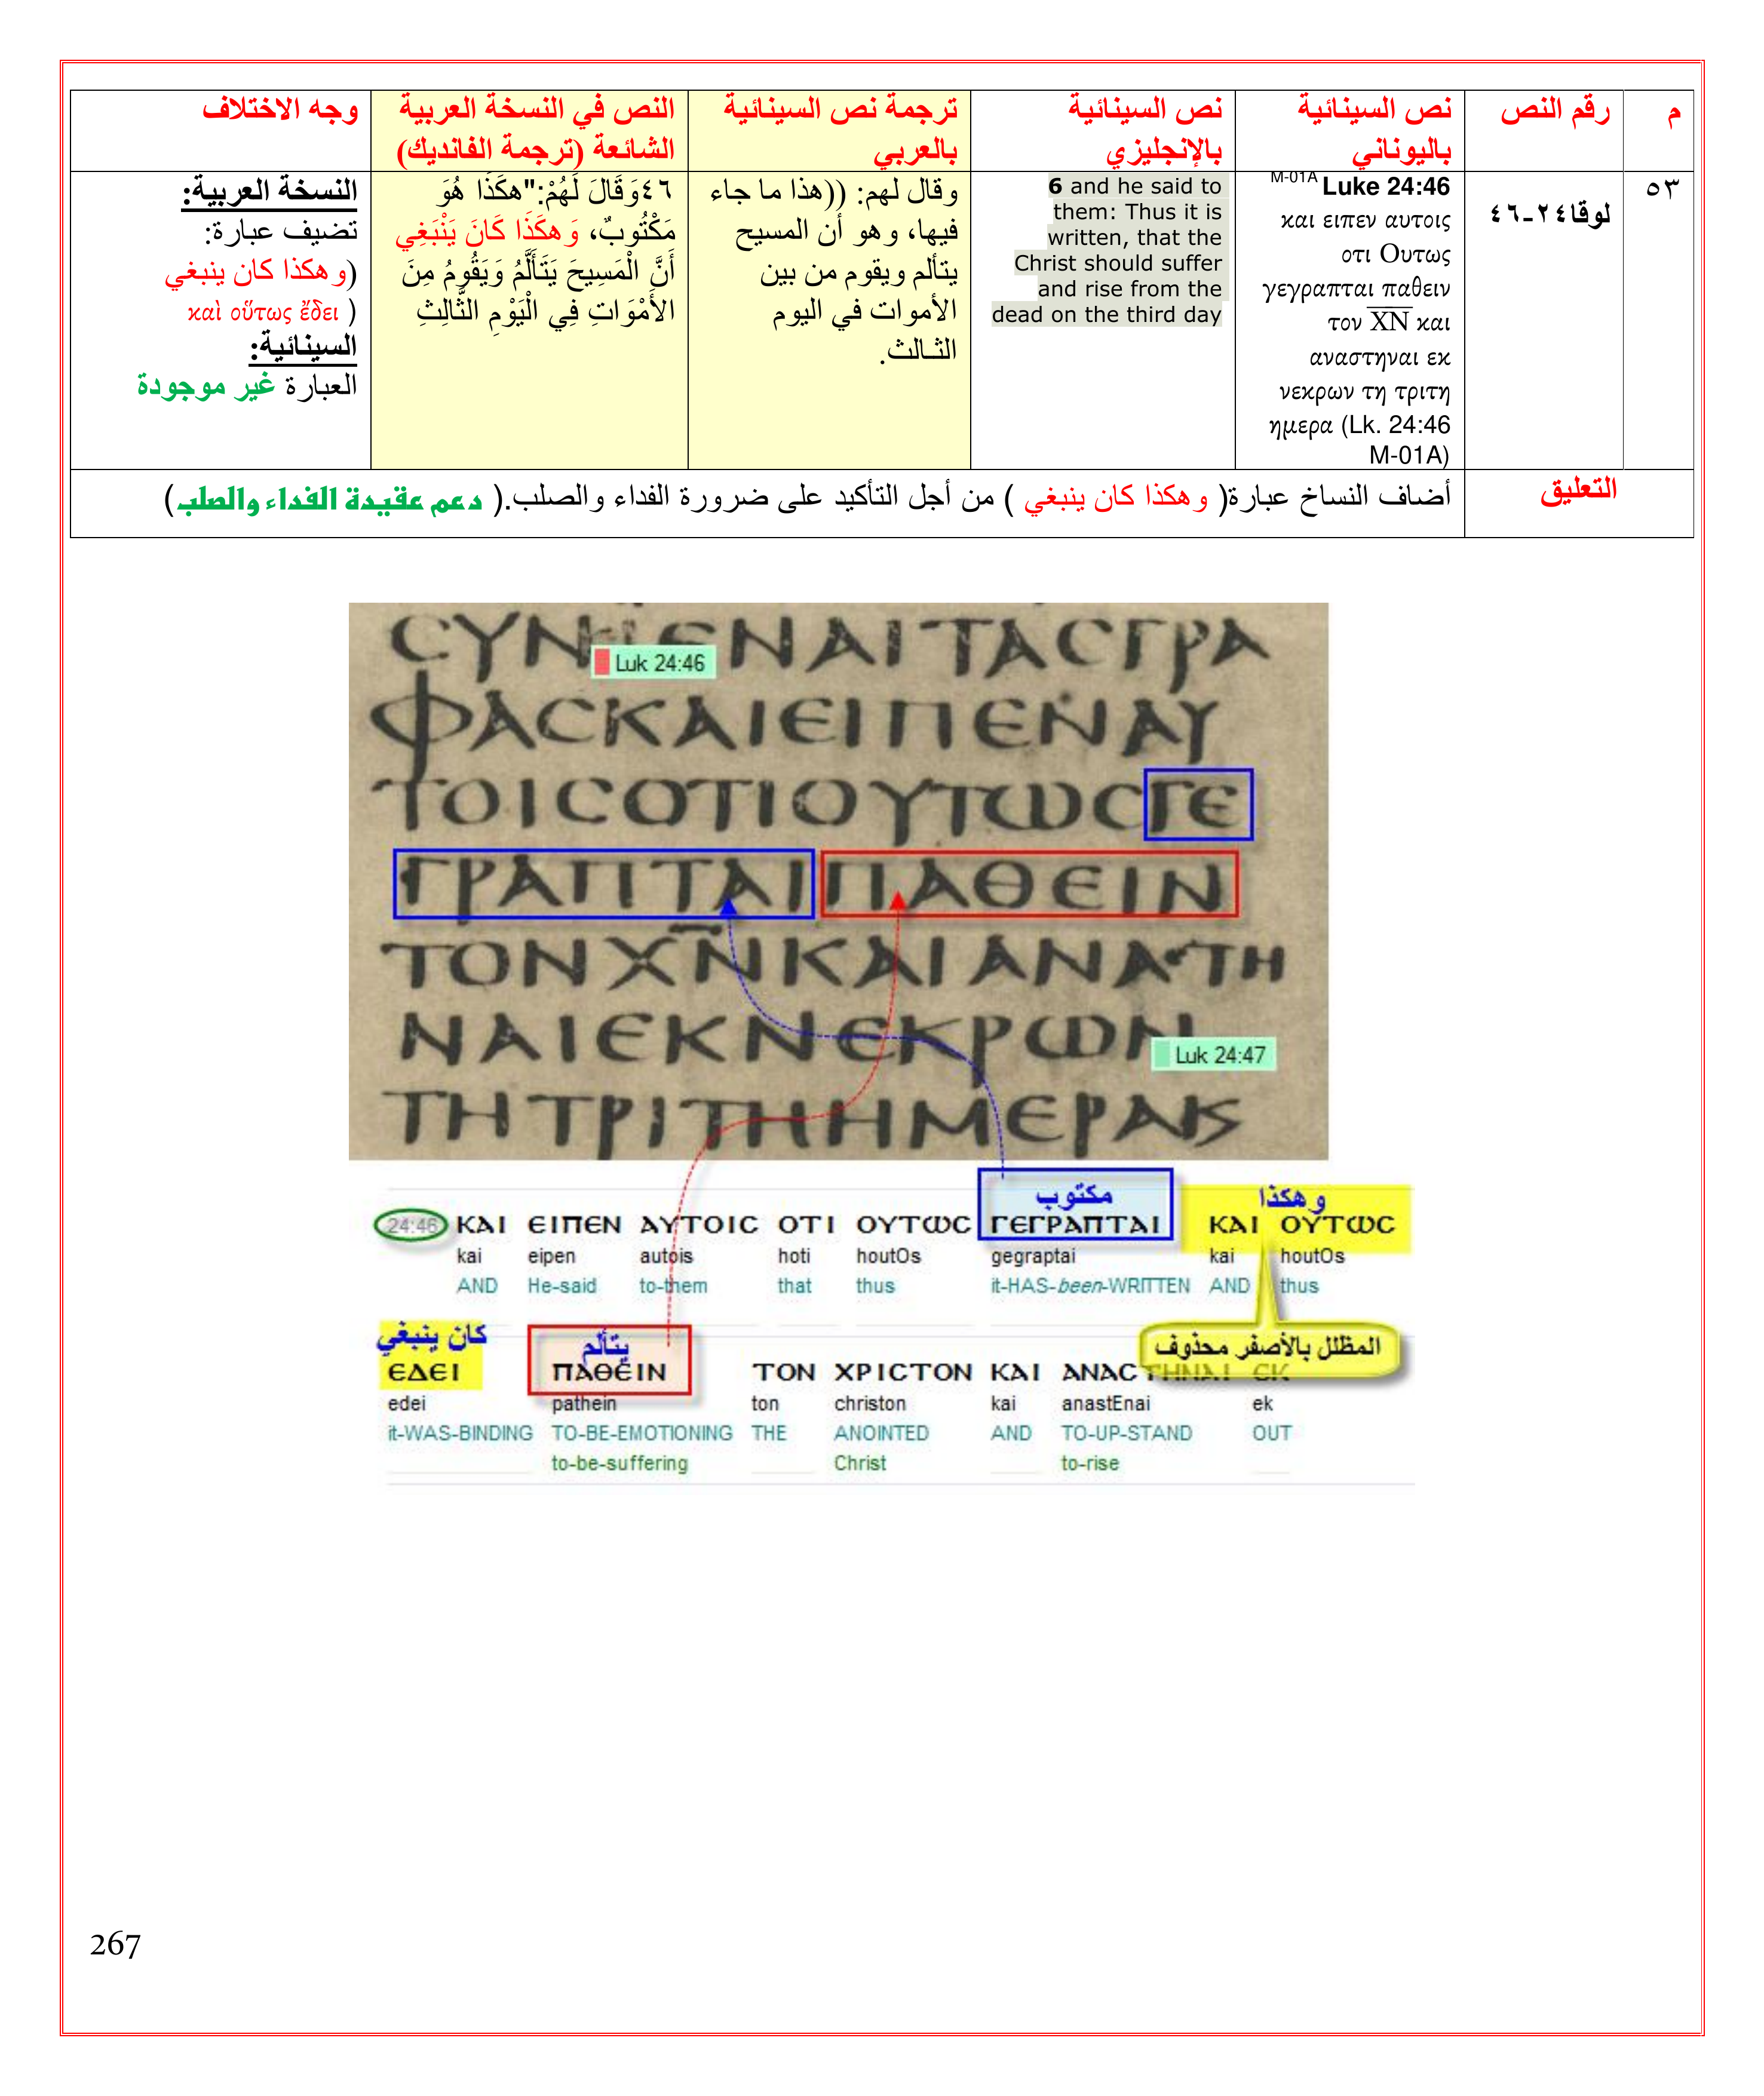 م
رقم النص
نص السينائية
باليوناني
نص السينائية
بالإنجليزي
ترجمة نص السينائية
بالعربي
النص في النسخة العربية
الشائعة (ترجمة الفانديك)
وجه الاختلاف
٥٣
لوقا٢٤-٤٦
M-01A Luke 24:46
και ειπεν αυτοις
οτι Ουτως
γεγραπται παθειν
τον X̅N̅ και
αναστηναι εκ
νεκρων τη τριτη
ημερα (Lk. 24:46
M-01A)
6 and he said to
them: Thus it is
written, that the
Christ should suffer
and rise from the
dead on the third day
وقال لهم: ((هذا ما جاء
فيها، وهو أن المسيح
يتألم ويقوم من بين
الأموات في اليوم
الثـالث.
٤٦وَقَالَ لَهُمْ:"هكَذَا هُوَ
مَكْتُوبٌ، وَهكَذَا كَانَ يَنْبَغِي
أَنَّ الْمَسِيحَ يَتَأَلَّمُ وَيَقُومُ مِنَ
الأَمْوَاتِ فِي الْيَوْمِ الثَّالِثِ
النسخة العربية:
تضيف عبارة:
(وهكذا كان ينبغي
καὶ οὕτως ἔδει )
السينائية:
العبارة غير موجودة
التعليق
أضاف النساخ عبارة( وهكذا كان ينبغي ) من أجل التأكيد على ضرورة الفداء والصلب.( دعم عقيدة الفداء والصلب)
ϹΥΝΙΕΝΑΙΤΑϹΓΡΑ
Luk 24:46
ΦΑϹΚΑΙΕΙΠΕΝΑΥ
ΤΟΙϹΟΤΙΟΥΤΩϹΓΕ
ΓΡΑΠΤΑΙΠΑΘΕΙΝ
ΤΟΝΧ̅Ν̅ΚΑΙΑΝΑϹΤΗ
ΝΑΙΕΚΝΕΚΡΩΝ
Luk 24:47
ΤΗΤΡΙΤΗΗΜΕΡΑΚϚ
مكتوب وهكذا
24:46 ΚΑΙ ΕΙΠΕΝ ΑΥΤΟΙϹ ΟΤΙ ΟΥΤΩϹ ΓΕΓΡΑΠΤΑΙ ΚΑΙ ΟΥΤΩϹ
kai eipen autois hoti houtOs gegraptai kai houtOs
AND He-said to-them that thus it-HAS-been-WRITTEN AND thus
كان ينبغي يتألم
المظلل بالأصفر محذوف
ΕΔΕΙ ΠΑΘΕΙΝ ΤΟΝ ΧΡΙϹΤΟΝ ΚΑΙ ΑΝΑϹΤΗΝΑΙ ΕΚ
edei pathein ton christon kai anastEnai ek
it-WAS-BINDING TO-BE-EMOTIONING THE ANOINTED AND TO-UP-STAND OUT
to-be-suffering Christ to-rise
267